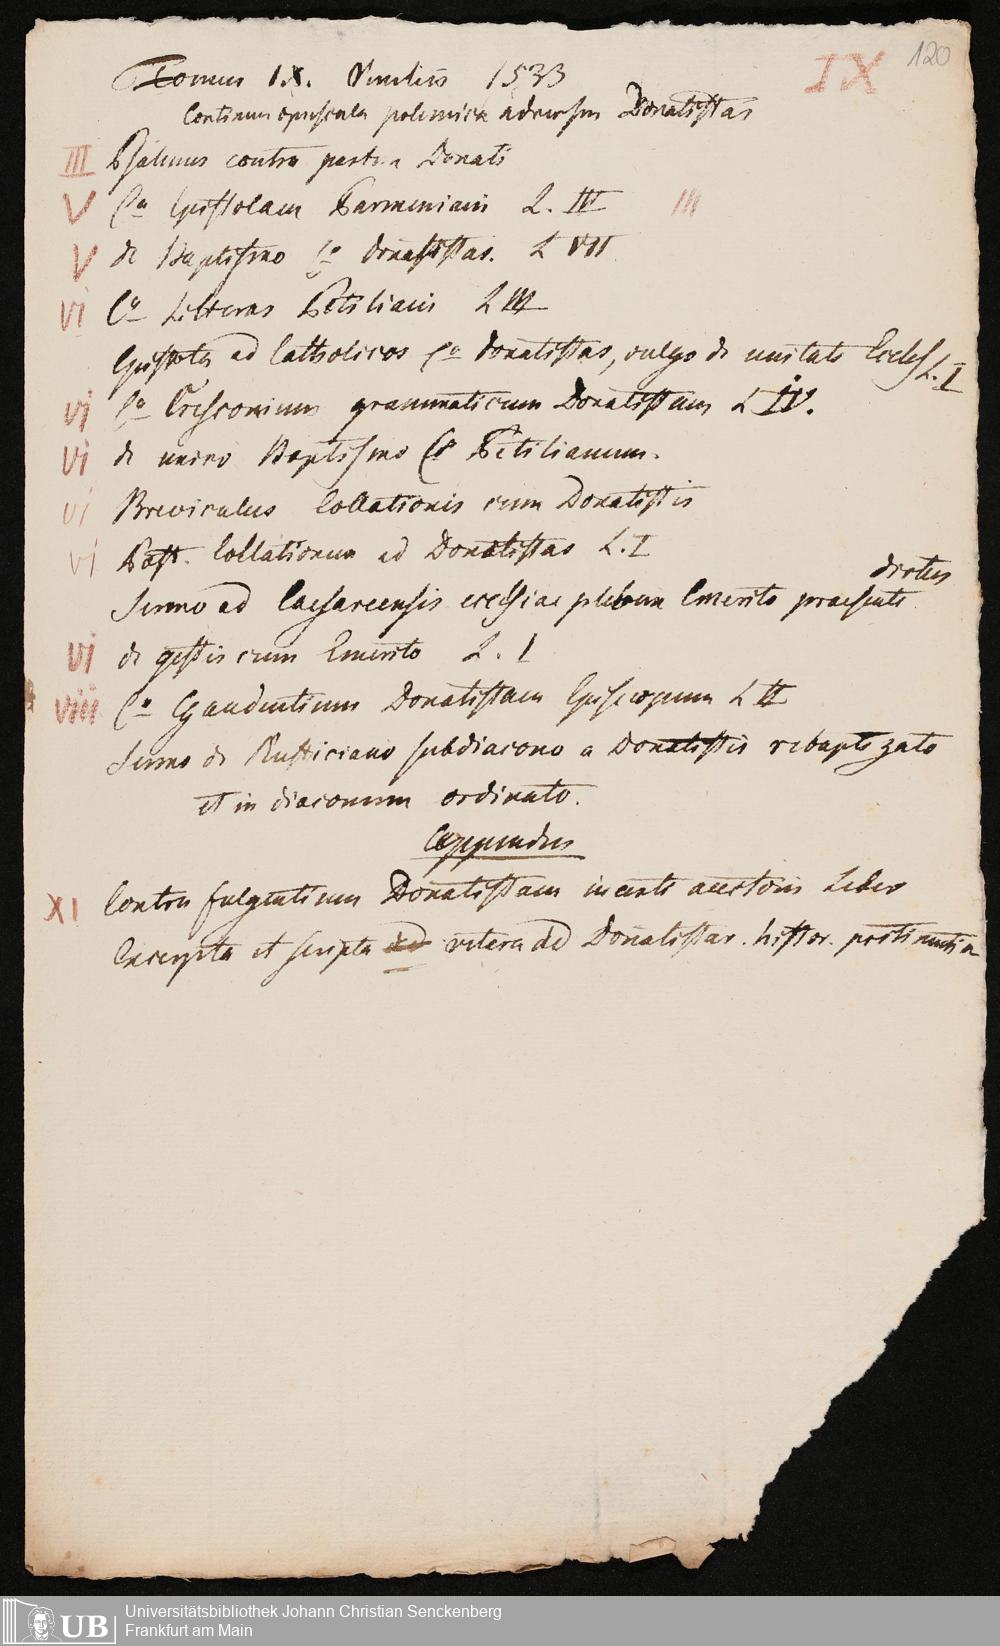 120
IX
Tomus IX. Venetiis 1533
Continens opuscula polemica adversus Donatistas
III Psalmus contra partem Donati
V Ca Epistolam Parmeniani L. III III
V de Baptismo Ca donatistas. L VII
vi Ca Litteras Petiliani L III
Epistola ad Catholicos Ca donatistas, vulgo de unitate Eccles L. I
vi Ca Cresconium grammaticum Donatistam L IV.
vi de unico Baptismo Ca Petilianum.
vi Breviculus Collationis cum Donatistis
vi Post. Collationem ad Donatistas L. I
Sermo ad Caesareensis ecclesiae plebem Emerito praesente dictus
vi de gestis cum Emerito L. I
viii Ca Gaudentium Donatistam Episcopum L II
Sermo de Rusticiano subdiacono a Donatistis rebaptizato
et in diaconum ordinato.
Appendix
XI Contra fulgentium Donatistam incerti auctoris Liber
Excerpta et scripta vetera ad Donatistar. histor. pertinentia
UB Universitätsbibliothek Johann Christian Senckenberg
Frankfurt am Main